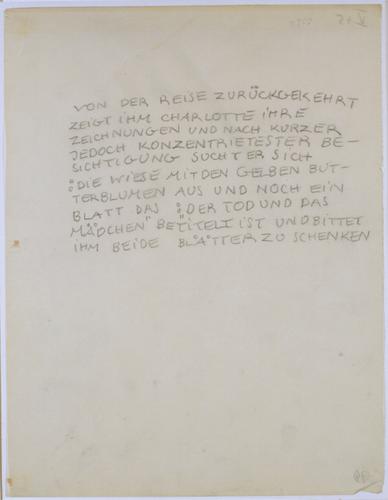 VON DER REISE ZURÜCKGEKEHRT
ZEIGT IHM CHARLOTTE IHRE
ZEICHNUNGEN UND NACH KURZER
JEDOCH KONZENTRIETESTER BE-
SICHTIGUNG SUCHT ER SICH
"DIE WIESE MIT DEN GELBEN BUT-
TERBLUMEN AUS UND NOCH EIN
BLATT DAS "DER TOD UND DAS
MÄDCHEN" BETITELT IST UND BITTET
IHM BEIDE BLÄTTER ZU SCHENKEN